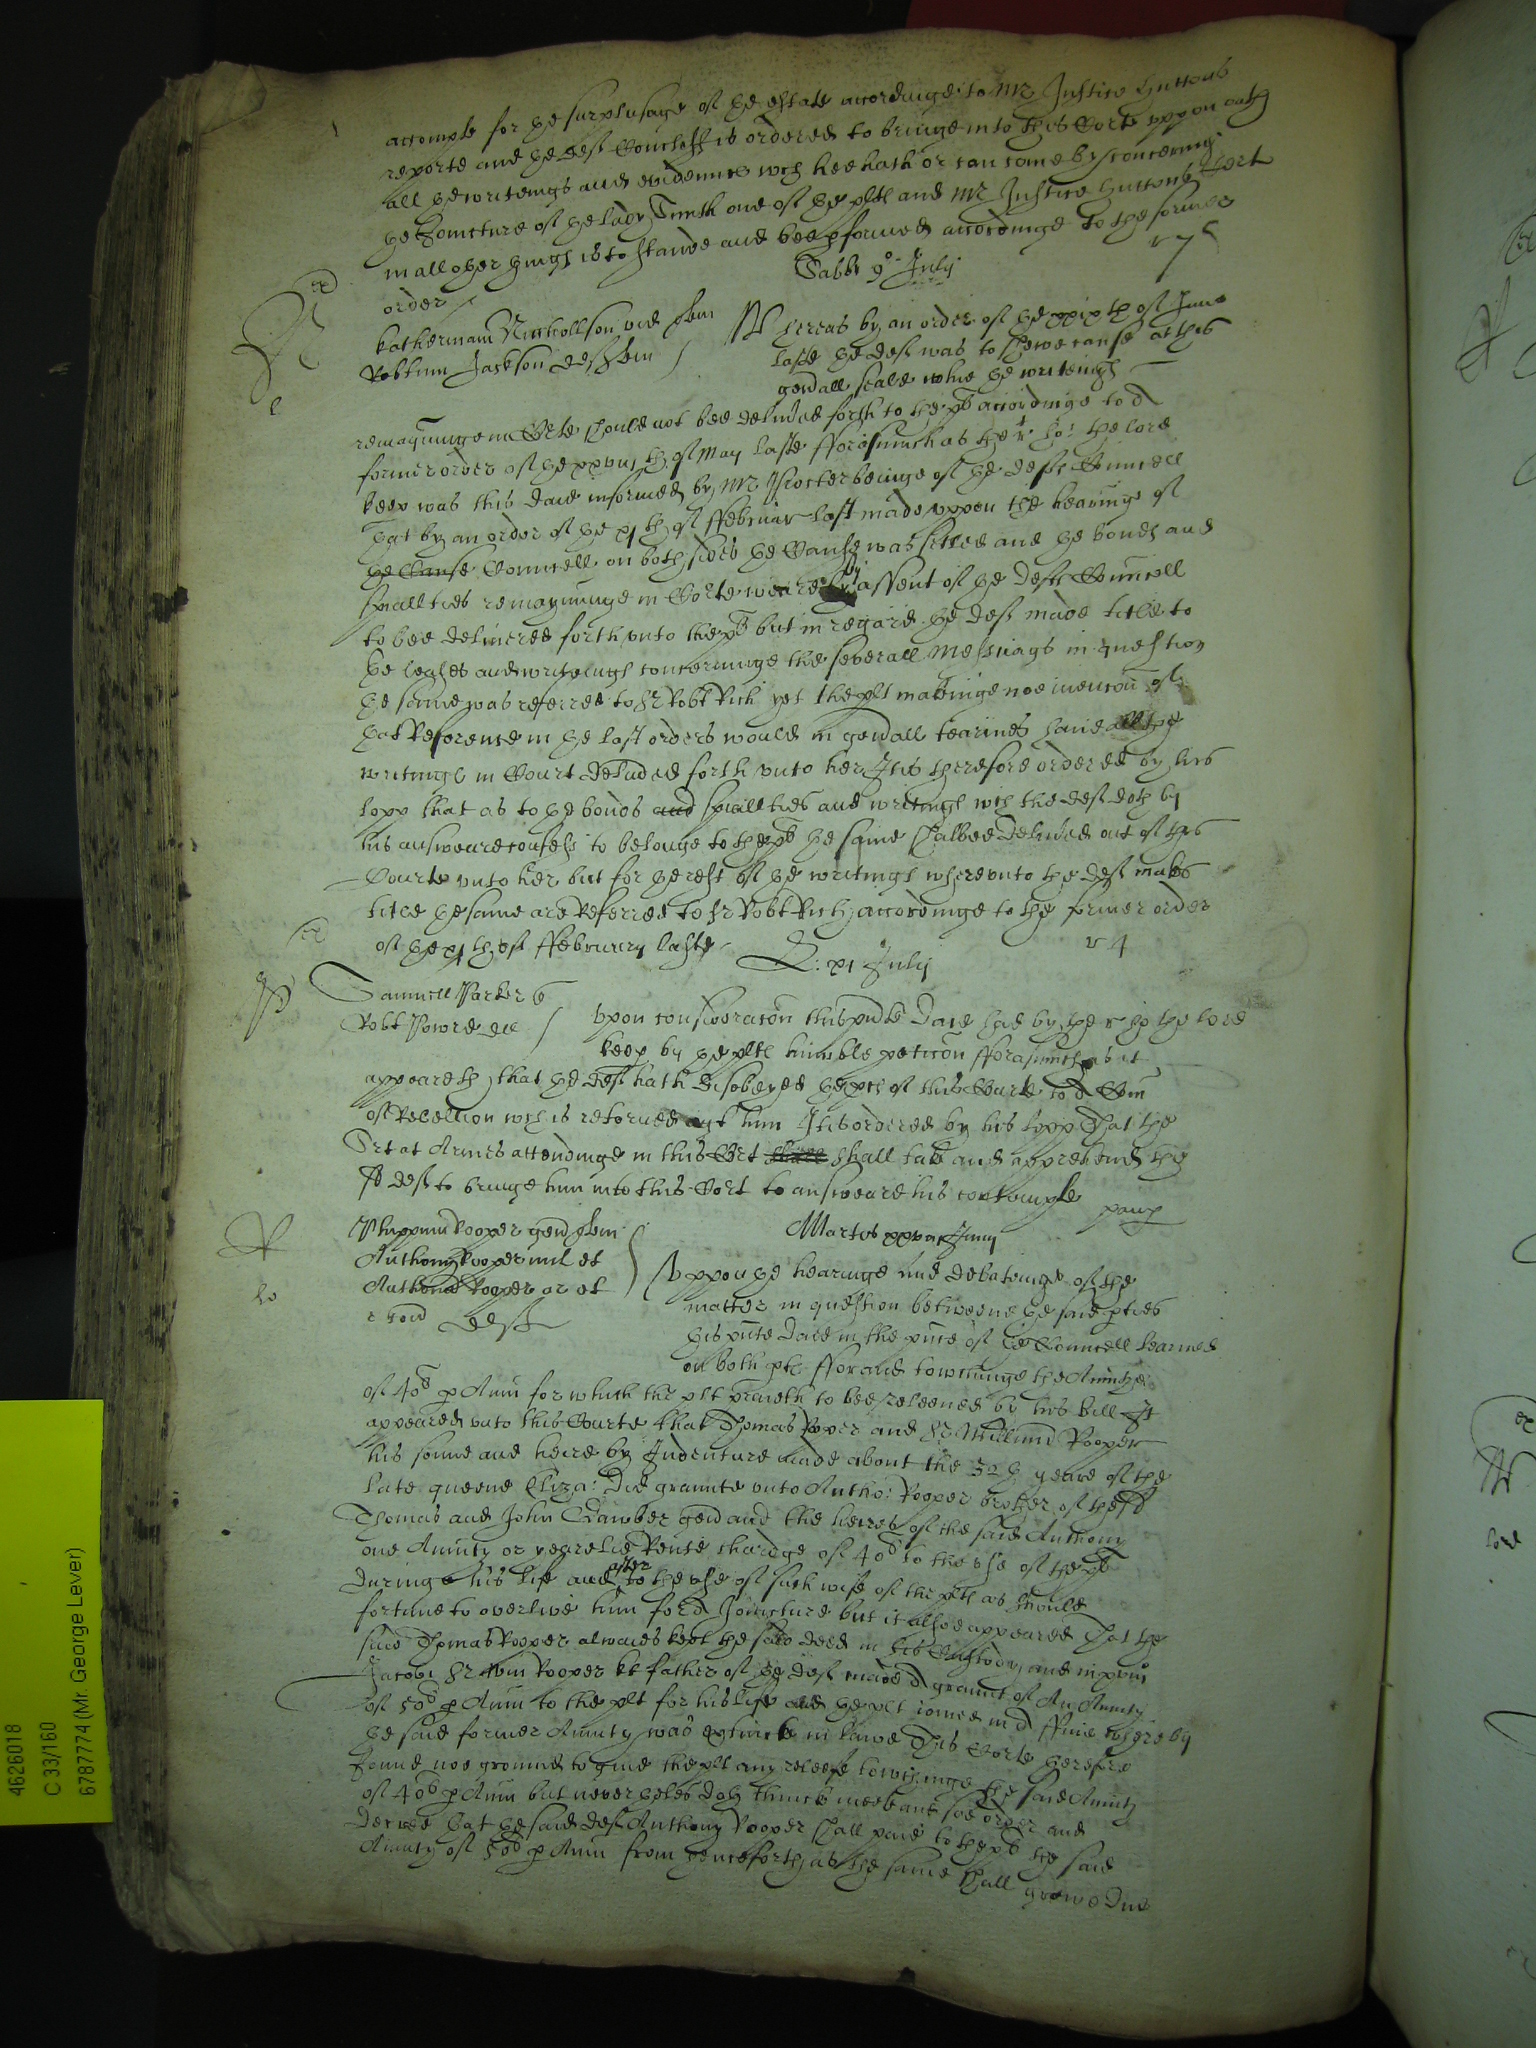 accompte for the surplusage of the estate accordinge to Mr Justice Huttons
reporte and the deft is ordered to bringe into this Corte uppon oath
all the writeings and evidences wch hee hath or can come by concerning
the Joincture of the lady Smith one of the plts and Mr Justice Huttons Cert
in all other things is to stande and bee pformed accordinge to the former
order
Sabbi 9o July
Katherinam Nicholson vid
Robtum Jackson deft
Whereas by an order of the xxixth of June
laste the deft was to shewe cause at this
genall seale whie the writeings
remayninge in Corte should not bee delivred forth to the plt accordinge to a
former order of the of May laste fforasmuch as the r. ho: the lord
keep was this daie informed by Mr beinge of the defts Councell
That by an order of the xjth of ffebruar last made uppon the hearinge of
the Cause Councell on both sides the Cause was setled and the bonds and
spialties remayninge in Corte weare by assent of the defts Councell
to bee delivered forth unto the plt but in regard the deft made title to
the leases and writeings concerninge the severall Messuags in question
the same was referred to Sr Robt Rich yet the plt makeinge noe mencon of
that Reference in the last orders would in genall tearmes have all the
writings in Court delivred forth unto her It is therefore ordered by his
lopp that as to the bonds and spialties and writeings wch the deft doth by
his answeare confesse to belonge to the plt the same shalbee delivred out of this
Courte unto her but for the rest of the writings whereunto the deft makes
title the same are Referred to Sr Robt Rich accordinge to the former order
of the xjth of ffebruary laste
r 4
xj July
Samuell Parker
Robt Powre
Upon consideracon this pnte daie had by the r ho the lord
keep by the plts humble peticon fforasmuch as it
appeareth that the deft hath disobeyed the pces of this Courte to a Com
of Rebellion wch is retorned agt him It is ordered by his lopp That the
Srt at Armes attendinge in this Cort shall take and apprehend the
sd deft to bringe him into this Cort to answeare his contempte
paup
Martis Junij
Phillippum Rooper gen
Anthony Rooper mil et
Anthony Rooper ar et
deft
Uppon the hearinge and debateinge of the
matter in question betweene the said pties
this pnte daie in the pnce of the Councell learned
on both pts ffor and towchinge the Annity
of 40li p Ann for which the plt praieth to bee releeved by his bill It
appeared unto this Courte that Thomas Rooper and Sr Willm Rooper
his sonne and heire by Indenture made about the 32th yeare of the
late queene Eliza: did graunte unto Antho: Rooper brother of the sd
Thomas and John gen and the heires of the said Anthony
one Annity or yearelie Rente chardge of 40li to the use of the plt
during his life and after to the use of such wife of the plts as should
fortune to overlive him for a Joincture but it alsoe appeared That the
said Thomas Rooper alwaies kept the said deed in his Custody and in primo
Jacobi Sr Wm Rooper kt father of the deft made a graunt of An Annity
of 50li p Ann to the plt for his life and the plt ioined in a ffine whereby
the said former Annity was extinct in lawe This Corte therefore
found noe ground to give the plt any releefe towchinge the said Annity
of 40li p Ann but neverthelesse doth thinck meete and soe order and
decree that the said deft Anthony Rooper shall paie to the plt the said
Annity of 50li p Ann from henceforth as the same shall growe due
4626018
C 33/160
6787774 (Mr. George Lever)